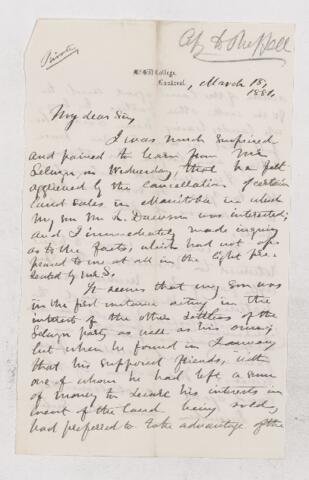 Private
McGill College,
Montreal, March 18, 1881.
My dear Sir,
I was much surprised
and pained to learn from Mr
Selwyn on Wednesday, that he felt
aggrieved by the cancellation of certain
land sales in Manitoba in which
my son Mr Dawson was interested;
and I immediately made inquiry
as to the facts, which had not ap-
peared to me at all in the light pre-
sented by Mr S.
It seems that my son was
in the first instance acting in the
interest of the other settlers of the
Selwyn party as well as his own;
but when he found in January
that his supposed friends, with
one of whom he had left a sum
of money to secure his interests in
event of the land being sold,
had preferred to take advantage of the